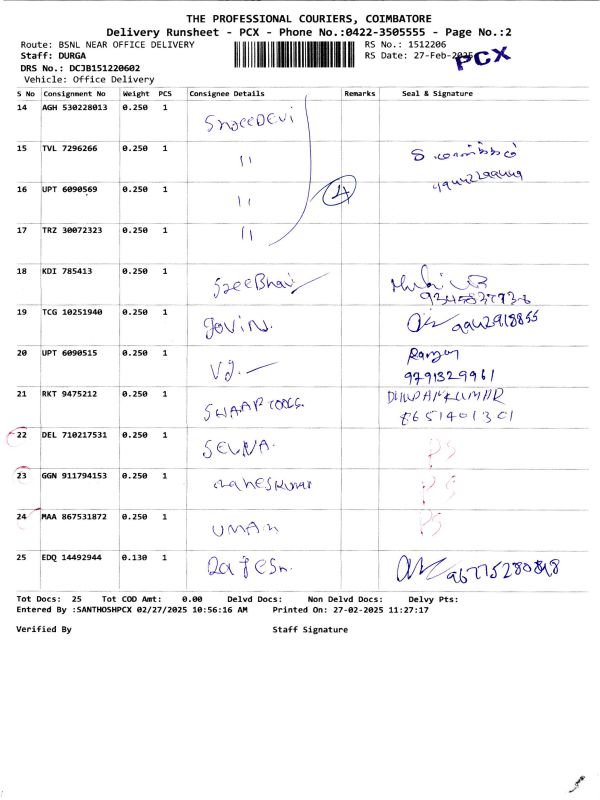 THE PROFESSIONAL COURIERS, COIMBATORE
Delivery Runsheet - PCX - Phone No.:0422-3505555 - Page No.:2
Route: BSNL NEAR OFFICE DELIVERY RS No.: 1512206
Staff: DURGA RS Date: 27-Feb-2025 PCX
DRS No.: DCJB151220602
Vehicle: Office Delivery
S No Consignment No Weight PCS Consignee Details Remarks Seal & Signature
14 AGH 530228013 0.250 1 SreeDevi
15 TVL 7296266 0.250 1 "
16 UPT 6090569 0.250 1 " 4
17 TRZ 30072323 0.250 1 "
18 KDI 785413 0.250 1 SreeBhavi
19 TCG 10251940 0.250 1 govin. 9942918855
20 UPT 6090515 0.250 1 Ranjan
9791329961
21 RKT 9475212 0.250 1
8651401301
22 DEL 710217531 0.250 1 SELVA. PS
23 GGN 911794153 0.250 1 maheskumar PS
24 MAA 867531872 0.250 1 UMA PS
25 EDQ 14492944 0.130 1 Rajesh.
Tot Docs: 25 Tot COD Amt: 0.00 Delvd Docs: Non Delvd Docs: Delvy Pts:
Entered By :SANTHOSHPCX 02/27/2025 10:56:16 AM Printed On: 27-02-2025 11:27:17
Verified By Staff Signature